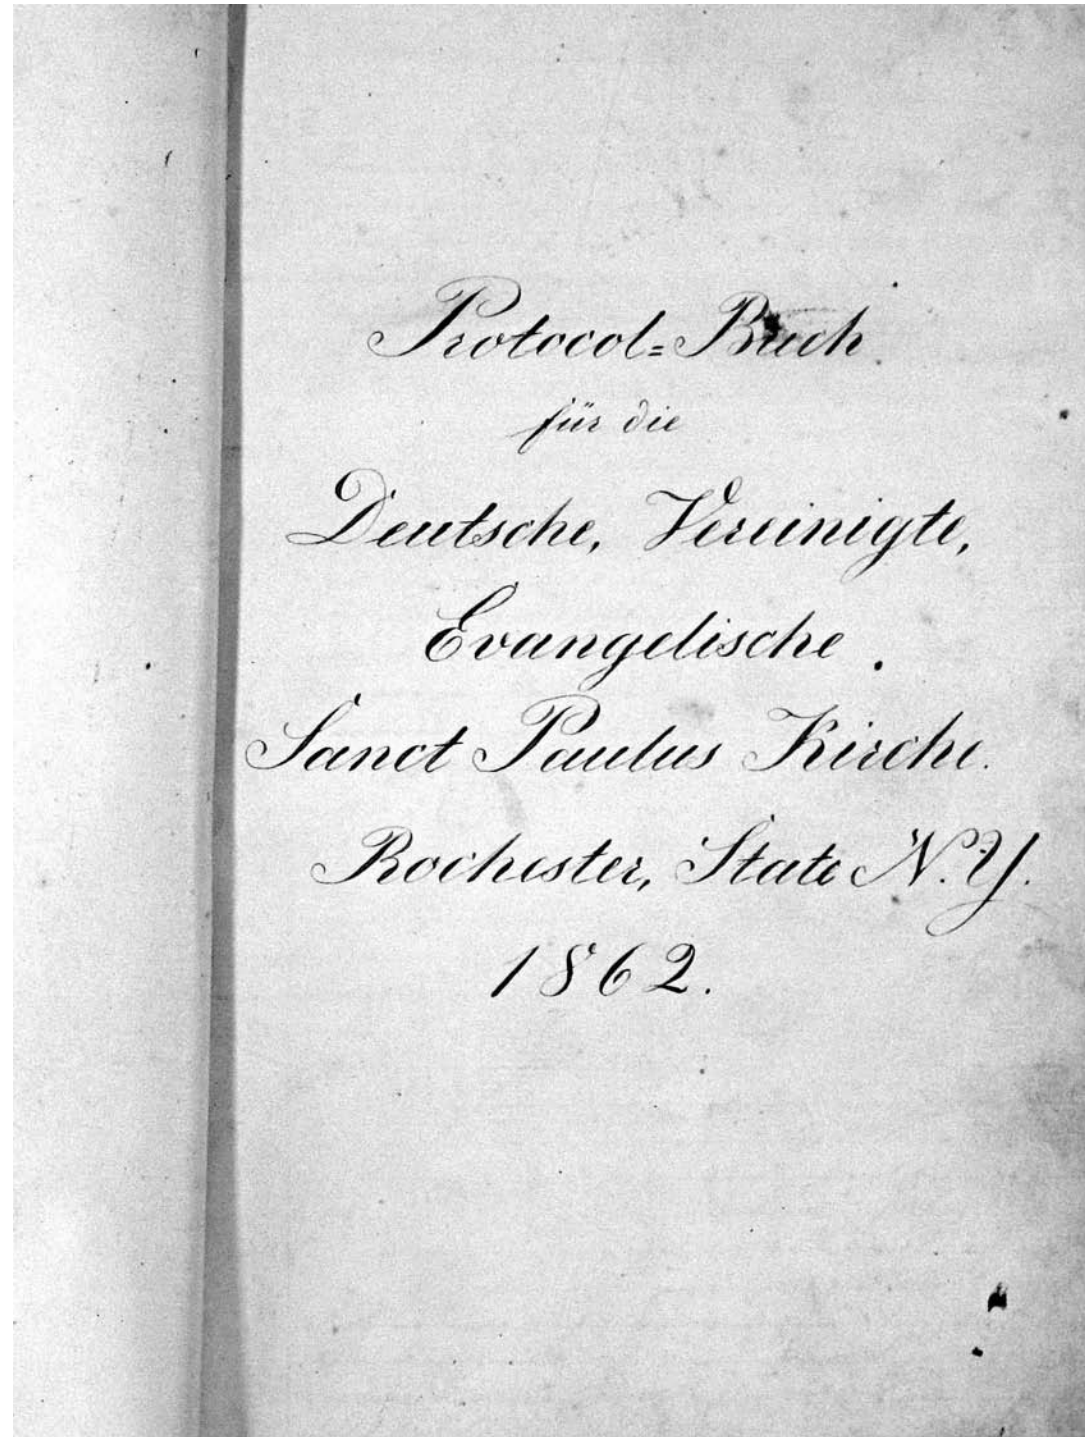 Protocol=Buch
für die
Deutsche, Vereinigte,
Evangelische.
Sanct Paulus Kirche.
Rochester, State N.Y.
1862.